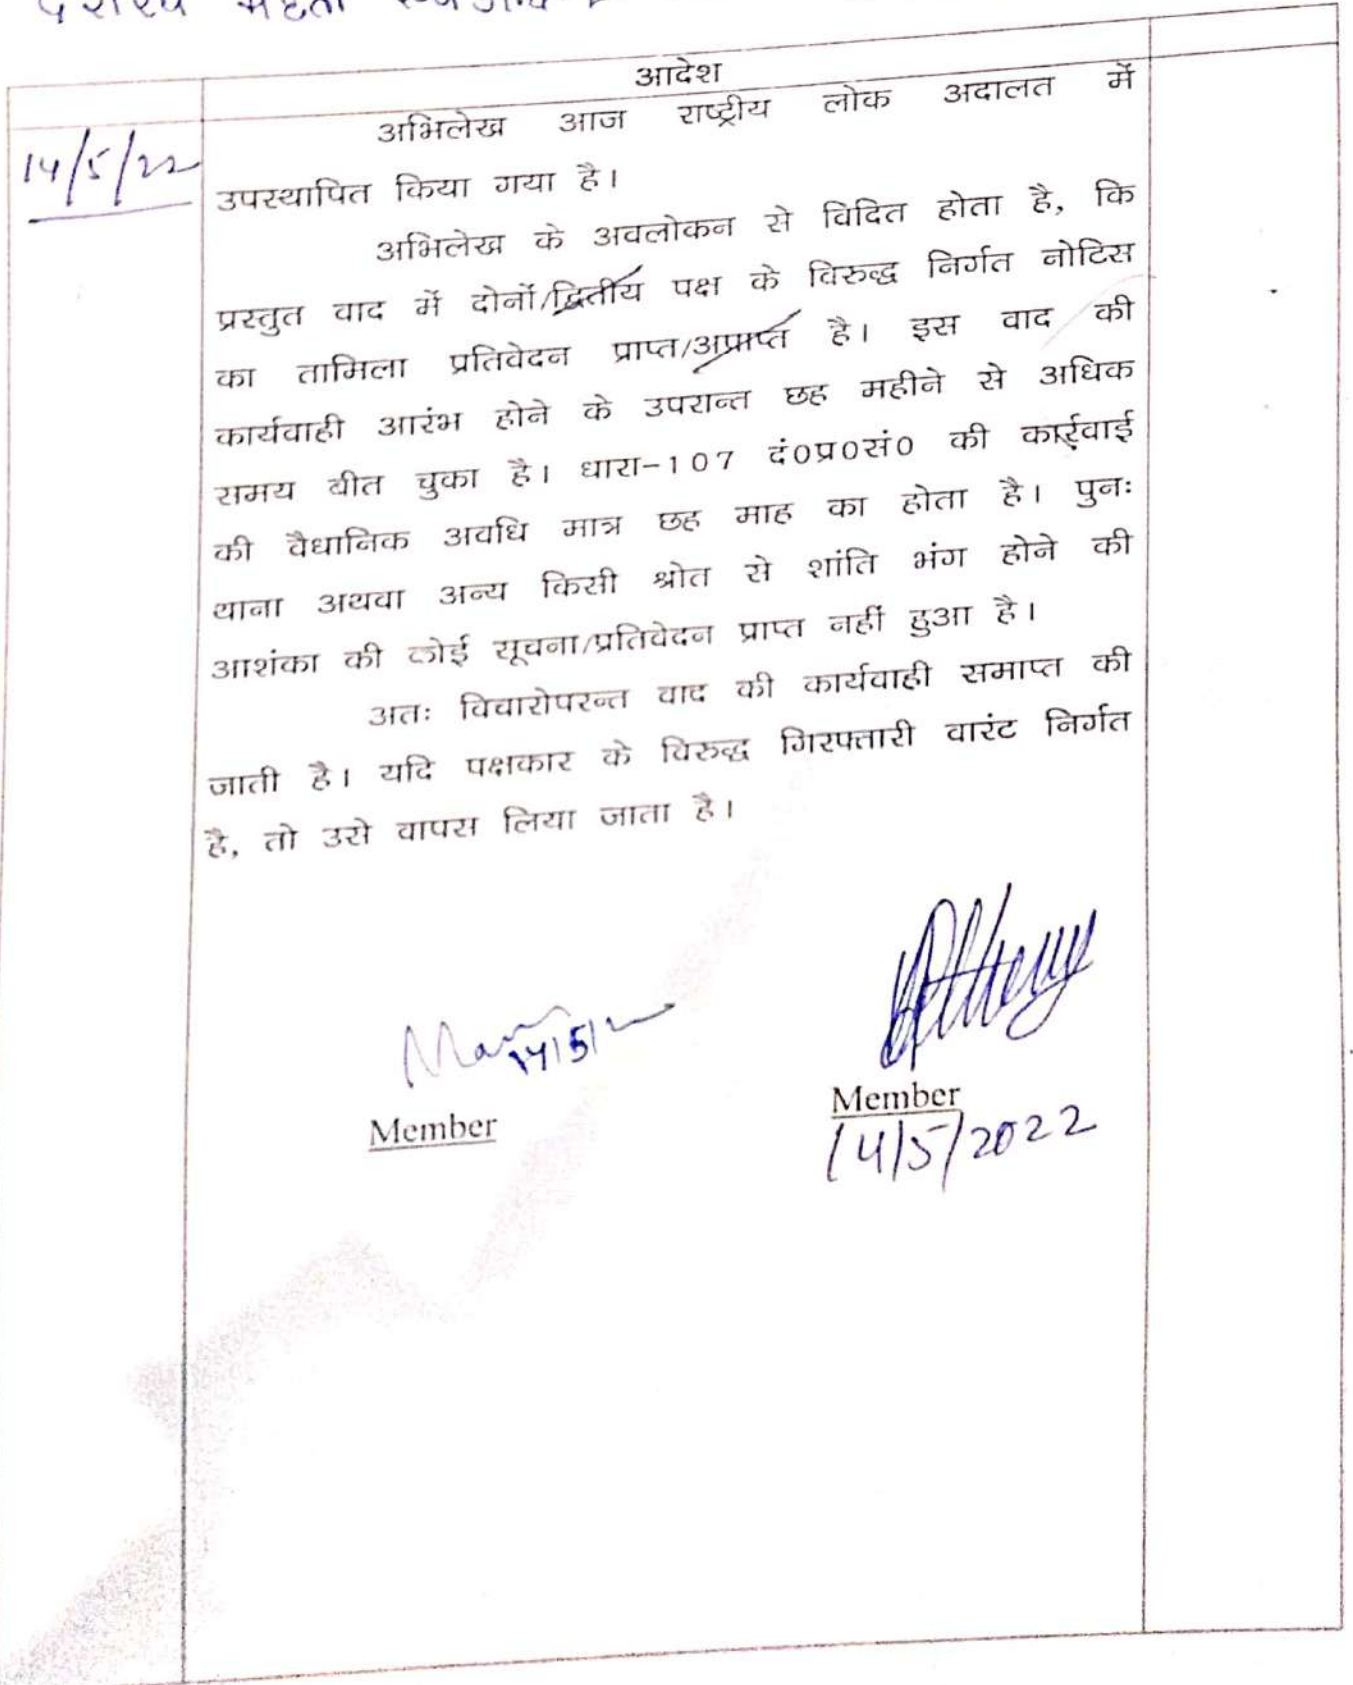 आदेश
14/5/22
अभिलेख आज राष्ट्रीय लोक अदालत में
उपस्थापित किया गया है।
अभिलेख के अवलोकन से विदित होता है, कि
प्रस्तुत वाद में दोनों/द्वितीय पक्ष के विरुद्ध निर्गत नोटिस
का तामिला प्रतिवेदन प्राप्त/अप्राप्त है। इस वाद की
कार्यवाही आरंभ होने के उपरान्त छह महीने से अधिक
समय बीत चुका है। धारा-107 दं०प्र०सं० की कार्रवाई
की वैधानिक अवधि मात्र छह माह का होता है। पुनः
थाना अथवा अन्य किसी श्रोत से शांति भंग होने की
आशंका की कोई सूचना/प्रतिवेदन प्राप्त नहीं हुआ है।
अतः विचारोपरन्त वाद की कार्यवाही समाप्त की
जाती है। यदि पक्षकार के विरुद्ध गिरफ्तारी वारंट निर्गत
है, तो उसे वापस लिया जाता है।
14/5/
Member
Member
14/5/2022